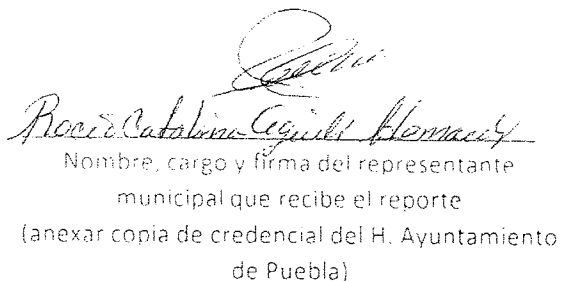 Rocío Catalina Aguilar
Nombre, cargo y firma del representante
municipal que recibe el reporte
(anexar copia de credencial del H. Ayuntamiento
de Puebla)